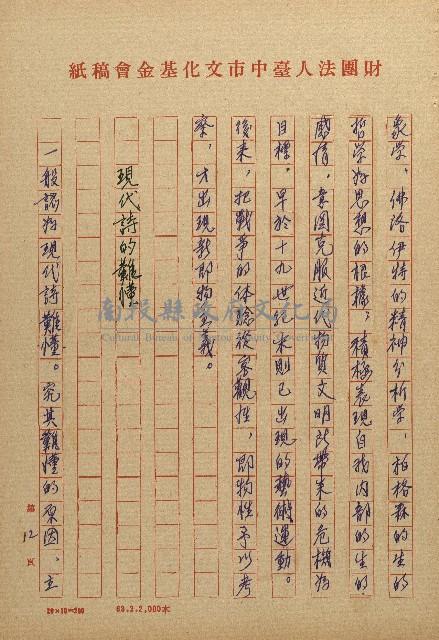 財團法人臺中市文化基金會稿紙
象学、佛洛伊特的精神分析学、柏格森的生的
哲学為思想的根據，積極表現自我内部的生的
感情，意圖克服近代物質文明所帶来的危機為
目標，早於十九世紀末則已出現的藝術運動。
後来，把戰爭的体驗從客觀性，即物性予以考
察，才出現新即物主義。
現代詩的難懂
一般認為現代詩難懂。究其難懂的原因，主
第12頁
南投縣政府文化局
Cultural Bureau of Nantou County Government
20×10=200
69.3.2,000本